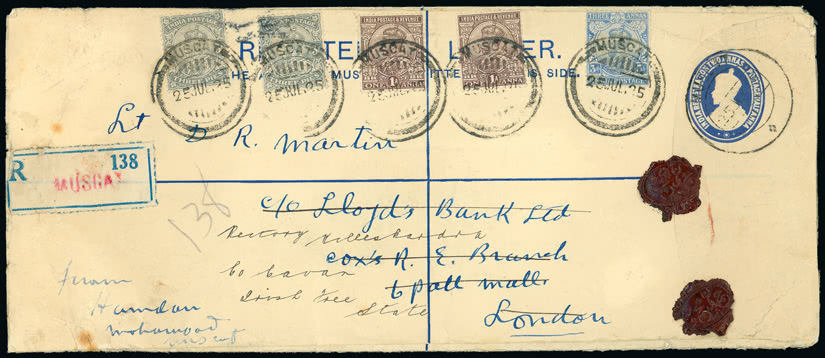 INDIA POSTAGE
INDIA POSTAGE & REVENUE
INDIA POSTAGE & REVENUE
THREE ANNAS
MUSCAT
25 JUL. 25
MUSCAT
25 JUL. 25
MUSCAT
25 JUL. 25
MUSCAT
25 JUL. 25
MUSCAT
25 JUL. 25
R TE L ER.
THE MUS ITTE IS SIDE.
Lt D R. Martin
R 138
MUSCAT
138
c/o Lloyd's Bank Ltd
Rectory Killeshandra
Cox's R. E. Branch
Co Cavan
6 Pall Mall
Irish Free
State
London
From
Hamdan
Mohamood
Muscat